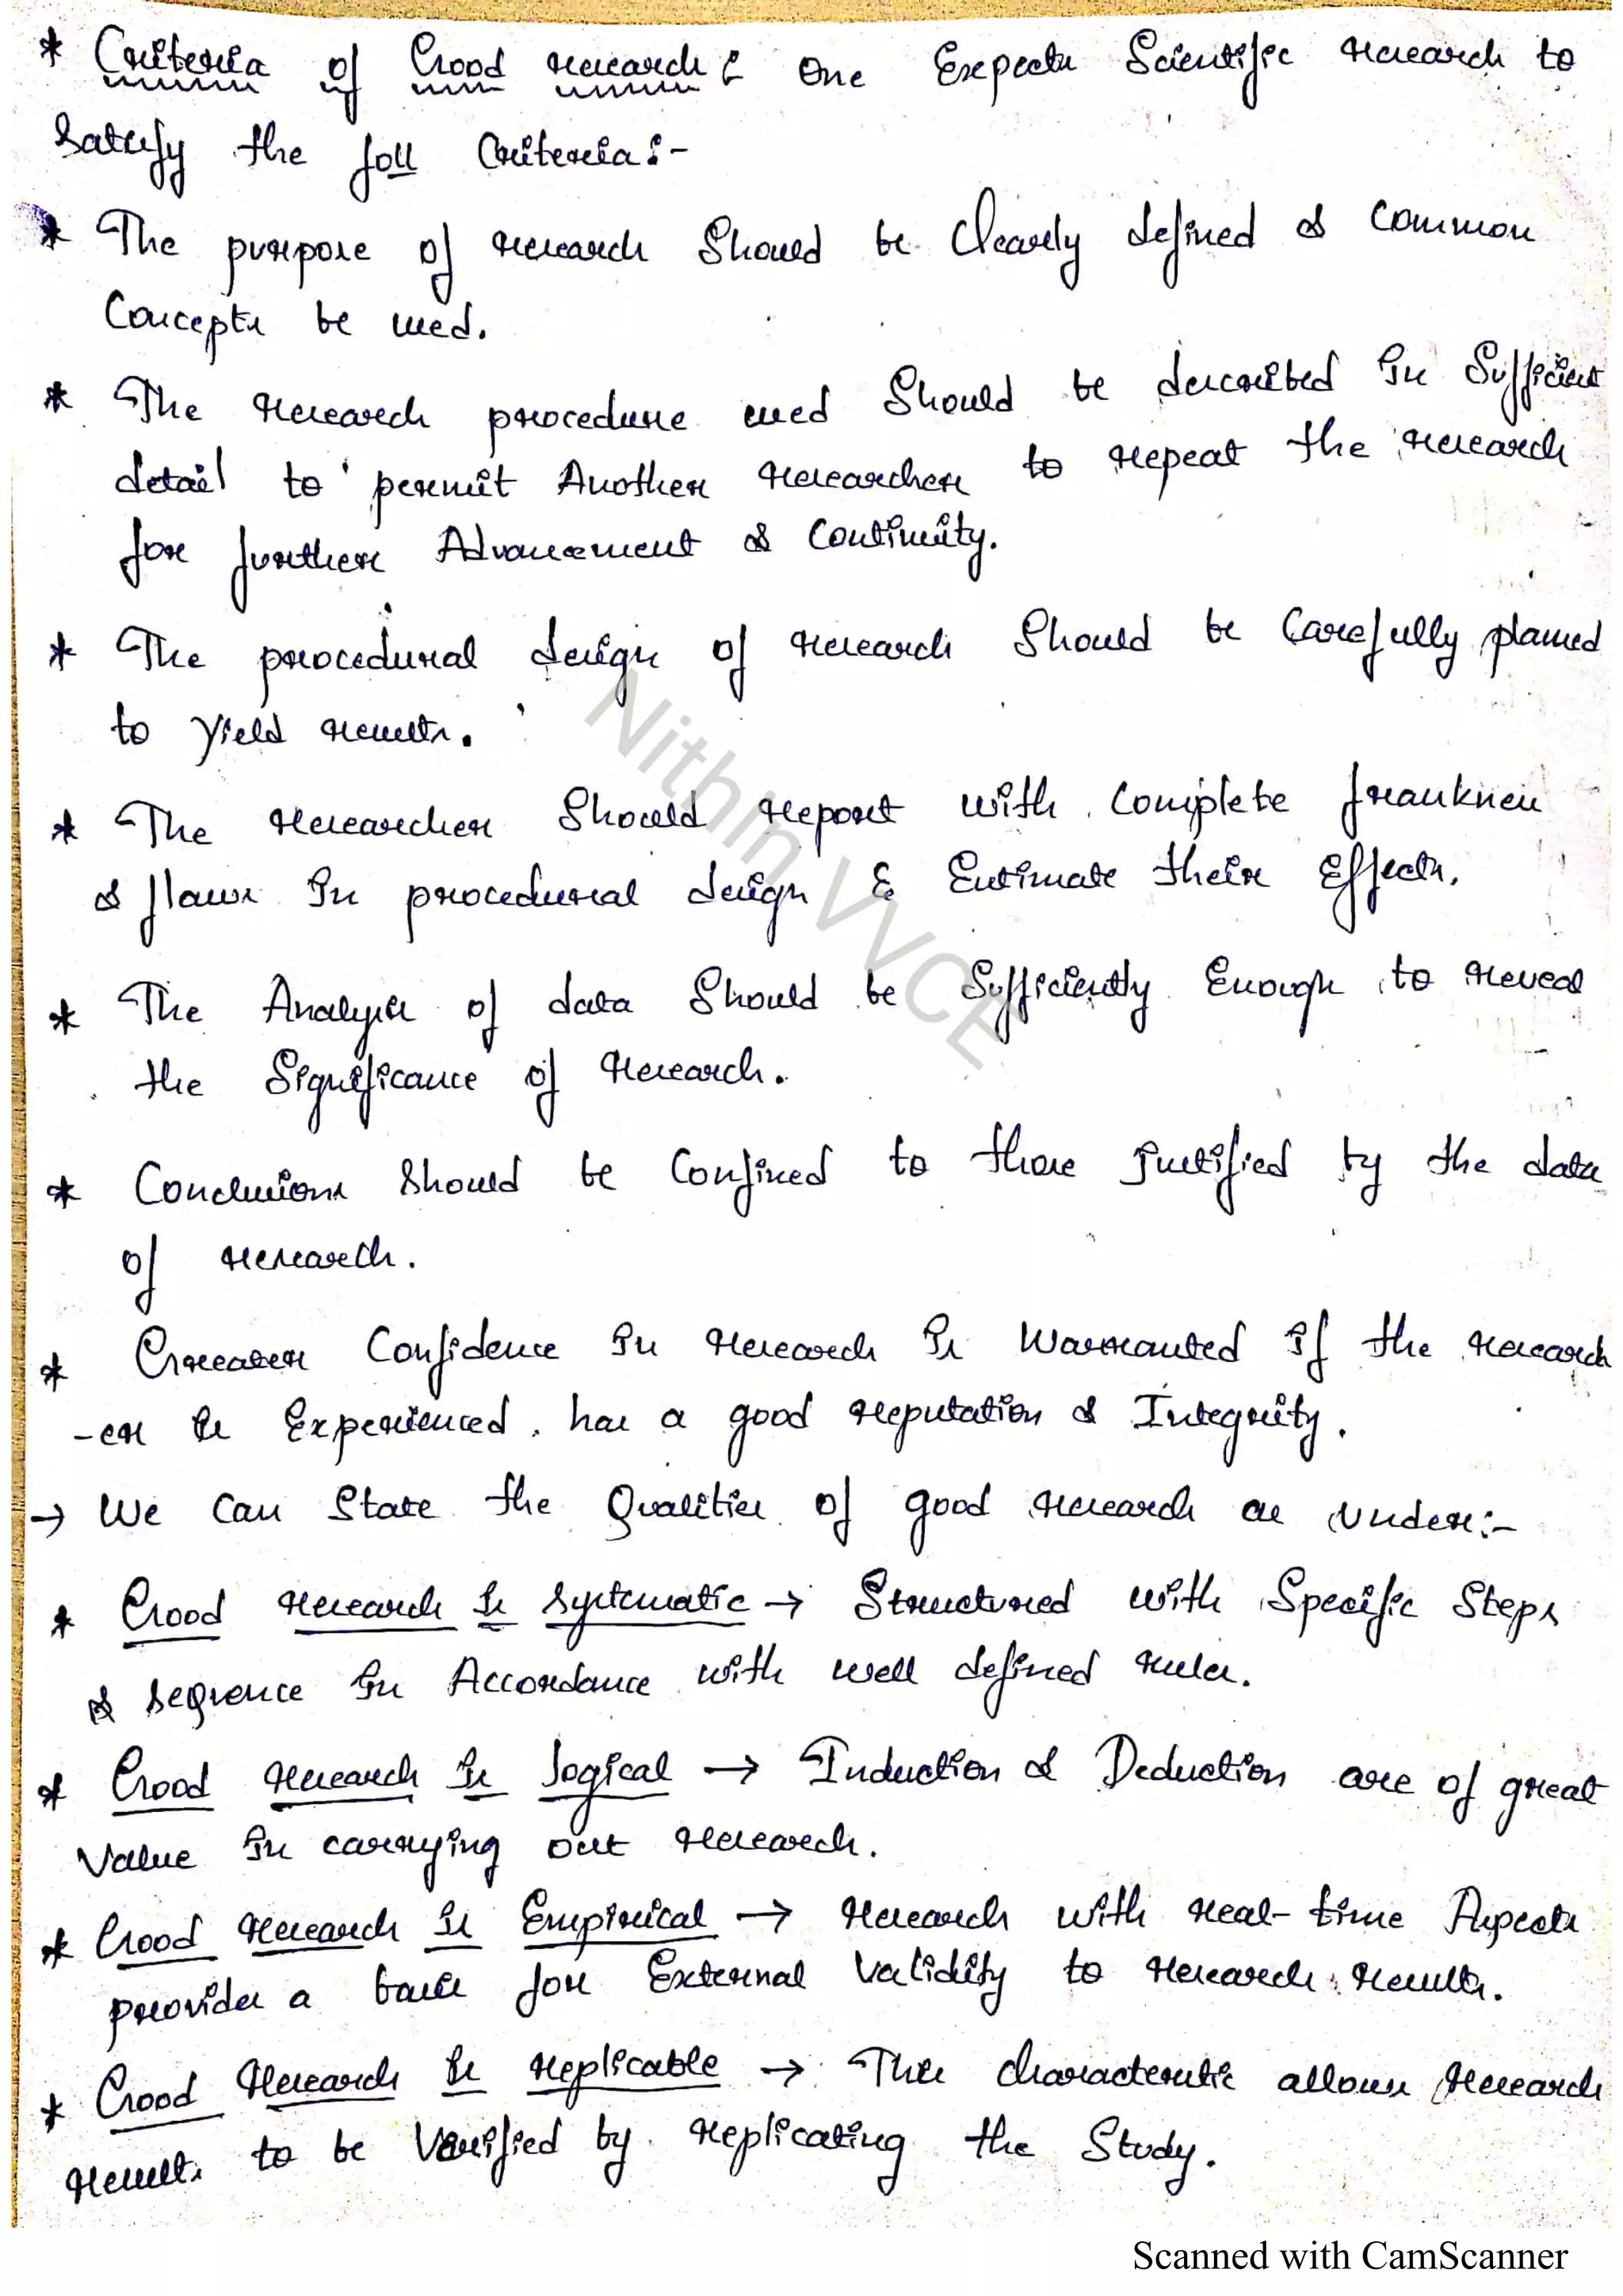 * Criteria of Good research : One Expects Scientific research to
Satisfy the foll Criteria :-
* The purpose of research Should be Clearly defined & Common
Concepts be used.
* The research procedure used Should be described In Sufficient
detail to permit Another researcher to repeat the research
for further Advancement & Continuity.
* The procedural design of research Should be Carefully planned
to Yield results.
* The researcher Should report with complete frankness
& flaws In procedural design & Estimate their Effects.
* The Analysis of data Should be Sufficiently Enough to reveal
the Significance of research.
* Conclusions Should be Confined to those Justified by the data
of research.
* Greater Confidence In research Is Warranted If the research
-er Is Experienced, has a good reputation & Integrity.
→ We Can State the Qualities of good research as under:-
* Good research Is Systematic → Structured with Specific Steps
& Sequence In Accordance with well defined rules.
* Good research Is logical → Induction & Deduction are of great
Value In carrying out research.
* Good research Is Empirical → research with real-time Aspects
provides a basis for External Validity to research results.
* Good Research Is replicable → This characteristic allows research
results to be Verified by replicating the Study.
Nithin VVCE
Scanned with CamScanner